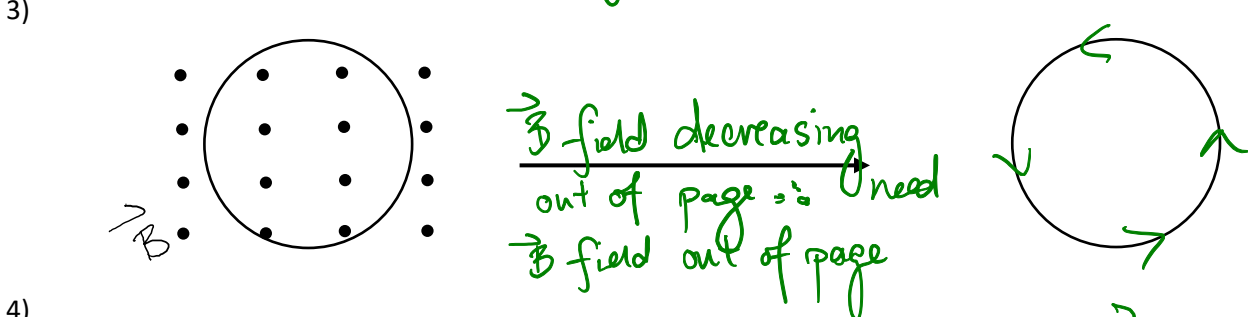 3)
B field decreasing
out of page ∴ need
B field out of page
B
4)